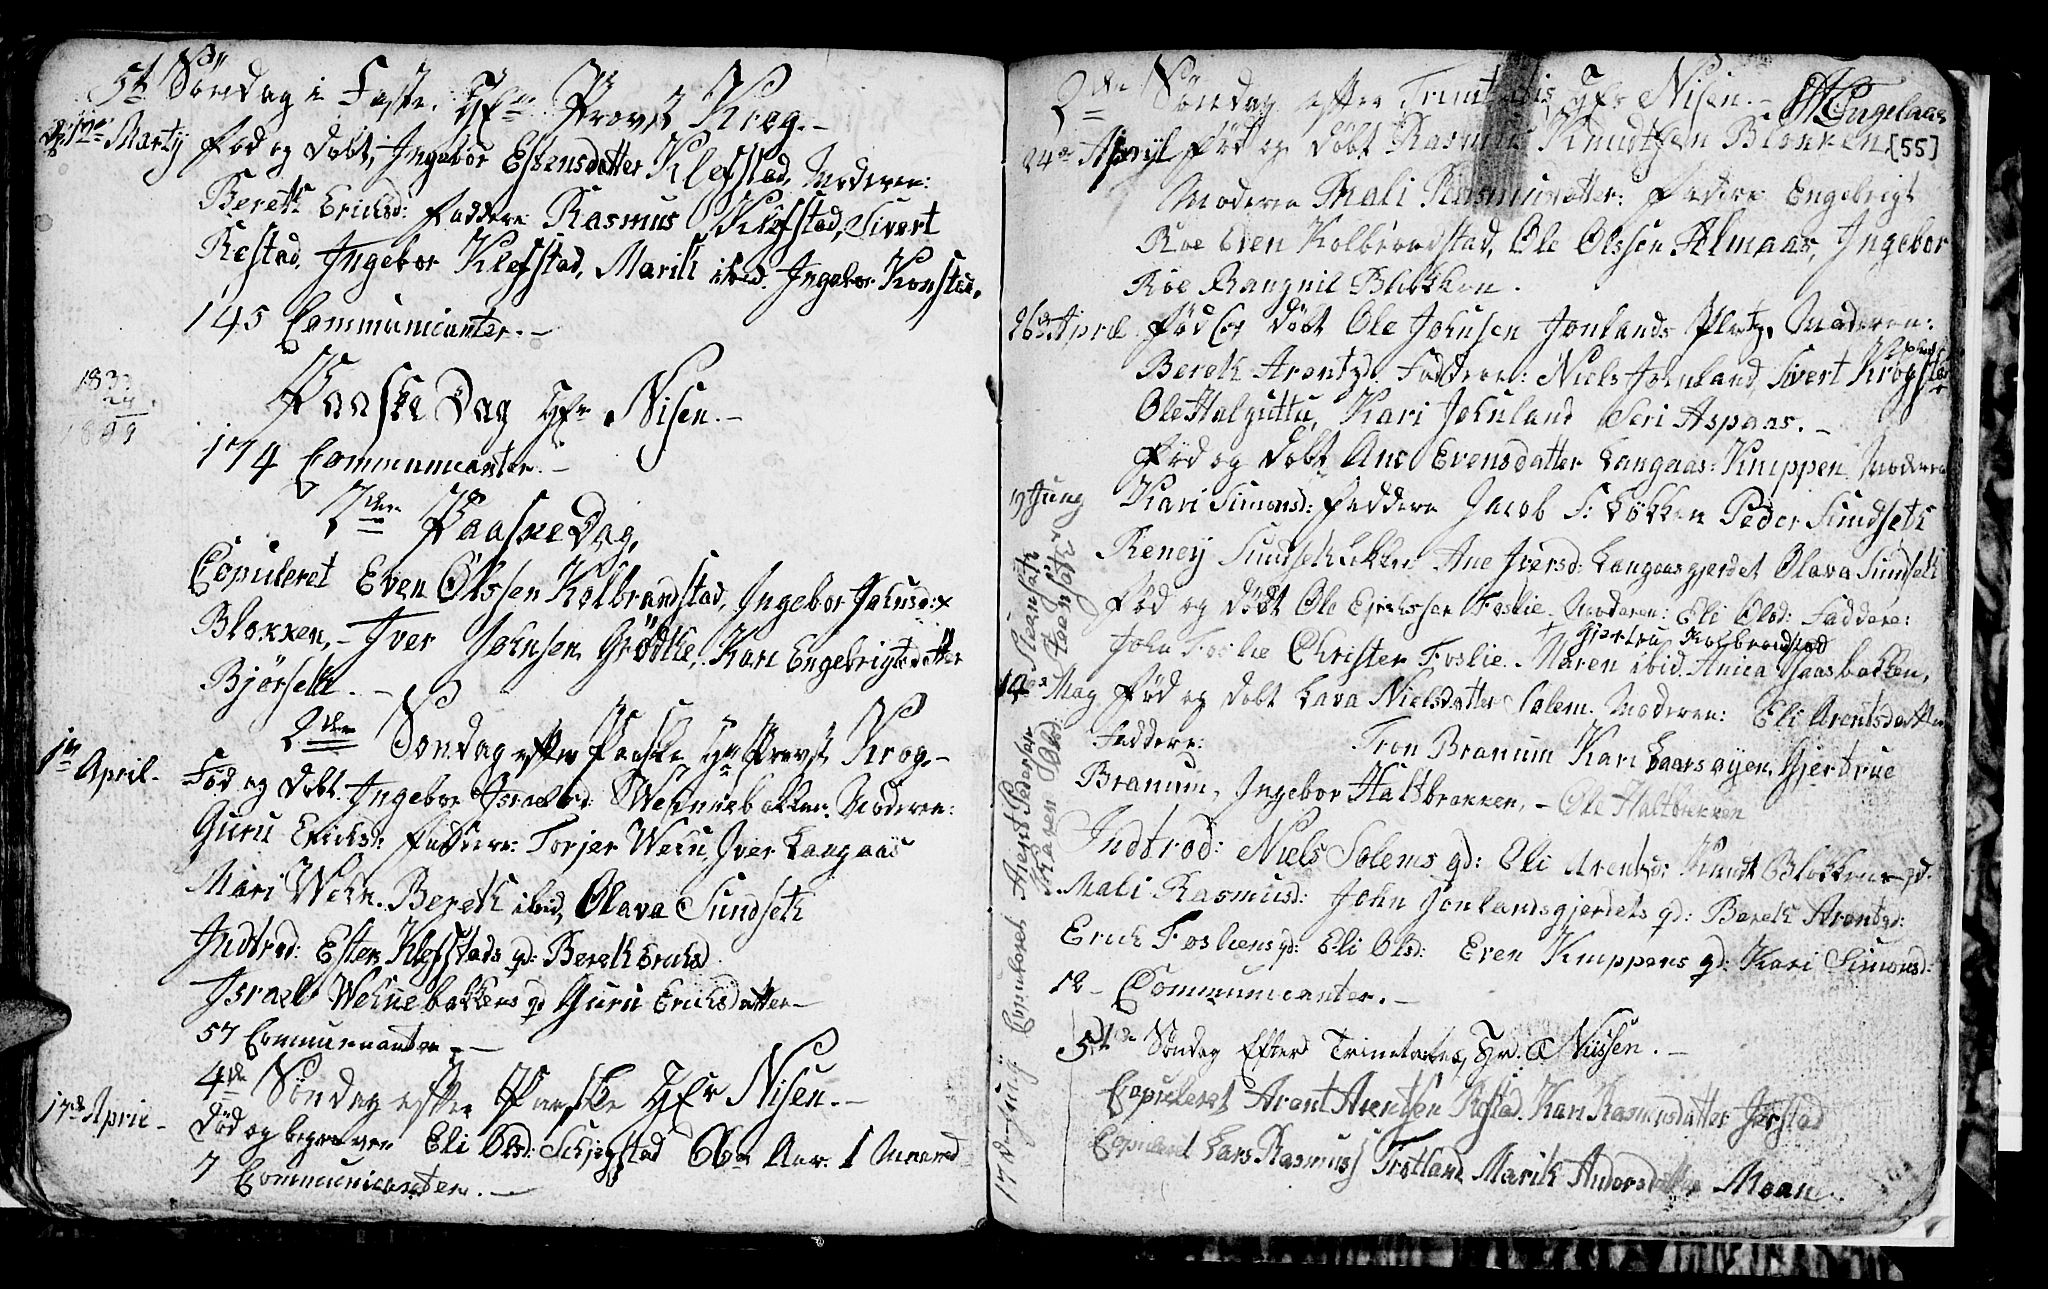 5te Søndag i Faste. Hr Provst Krog.-
Marty Fød og Døbt, Ingebor Estensdatter Klefstad, Moderen:
Bereth Ericksd: Faddere Rasmus Klefstad, Sivert
Restad, Ingebor Klefstad, Marith ibid. Ingebor Konstad.
145 Communicanter.-
1833
24
Paaske Dag Hr Nisen.-
174 Communicanter.-
2den Paaske Dag,
Copuleret Even Olssen Kolbrandstad, Ingebor Johnsd:
Blokken,- Iver Johnsen Grødthe, Kari Engebrigtsdatter
Bjørseth.-
2den Søndag efter Paaske Hr Provst Krog.-
1te April- Fød og Døbt Ingebor Israelsd: Wehnebakken. Moderen:
Guru Ericksd: Faddere: Torjer Wehn, Iver Langaas
Mari Wehn. Bereth ibid, Olava Sundseth
Indtrod: Esten Klefstads qd: Bereth Ericksd
Israel Wehnebakkens qd Guru Ericksdatter-
57 Communicanter.-
4de Søndag efter Paaske Hr Nisen.-
17de April- Død og begraven Eli Olsd: Schjegstad 66 Aar 1 Maaned
7 Communicanter.-
2den Søndag efter Trinitatis, Hr Nisen.- Engelaas
[55]
24de April Fød og Døbt Rasmus Knudtsen Blokken
Moderen Mali Rasmusdatter: Faddere Engebrigt
Roe Even Kolbrandstad, Ole Olssen Almaas, Ingebor
Roe Rangnil Blokken.
26de April Fød og Døbt Ole Johnsen Jonlands Platz. Moderen:
Bereth Arentzd. Faddere: Niels Johnland, Sivert Krogstad
Ole Halguttu, Kari Johnland Seri Aspaas.-
Fød og Døbt Ane Evensdatter Langaas: Knippen Moderen
19 Juny Kari Simonsd: Faddere Jacob S: Løkken Peder Sundseth
Reney Sundseth Ane Iversd: Langaasgjerdet Olava Sundseth
Fød og Døbt Ole Erichssen Foslie. Moderen: Eli Olsd: Faddere:
Gjertru Kolbrandstad
John Foslie Christen Foslie. Maren ibid. Anna Haasbakken,
May Fød og Døbt Lava Nielsdatter Solem. Moderen: Eli Arentsdatter
Faddere: Tron Branum Kari Laarsøyen, Gjertrue
Branum, Ingebor Haltbrækken,- Ole Haltbrækken
Indtrod: Niels Solems qd: Eli Arentsd: Knudt Blokkens qd.
Mali Rasmusd: John Jonlandsgjerdets qd: Bereth Arentsd:
Erich Fosliens qd: Eli Olsd: Even Knippens qd: Kari Simonsd:
12- Communicanter.-
5te Søndag Efter Trinitatis, Hr: Nissen.-
Copuleret Arent Arentsen Restad. Kari Rasmusdatter Jørstad
Copuleret Lars Rasmuss Trotland Marith Andersdatter Moan.
17 Juny Copuleret Arent Pedersen
Karen Olsd: